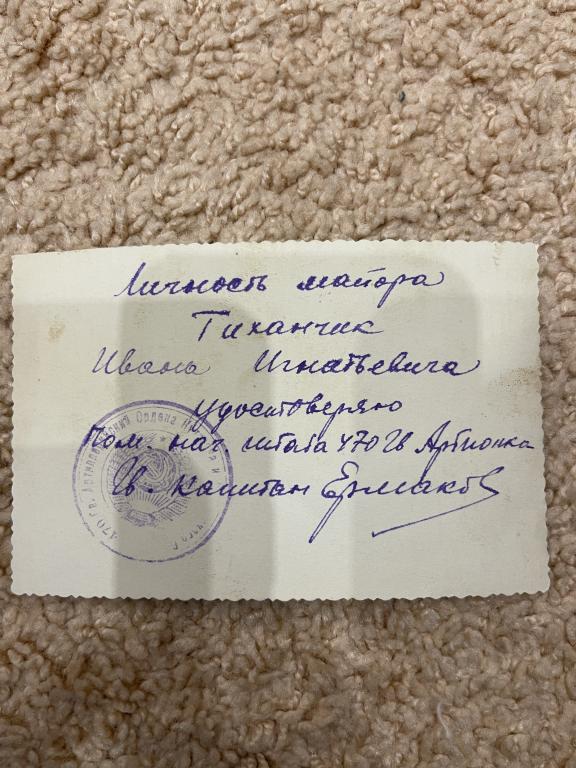 Личность майора
Тиханчик
Ивана Игнатьевича
удостоверяю
Пом. нач. штаба 470 Гв Артполка
Гв. капитан Ермаков
470 Гв. Артиллерийский Ордена